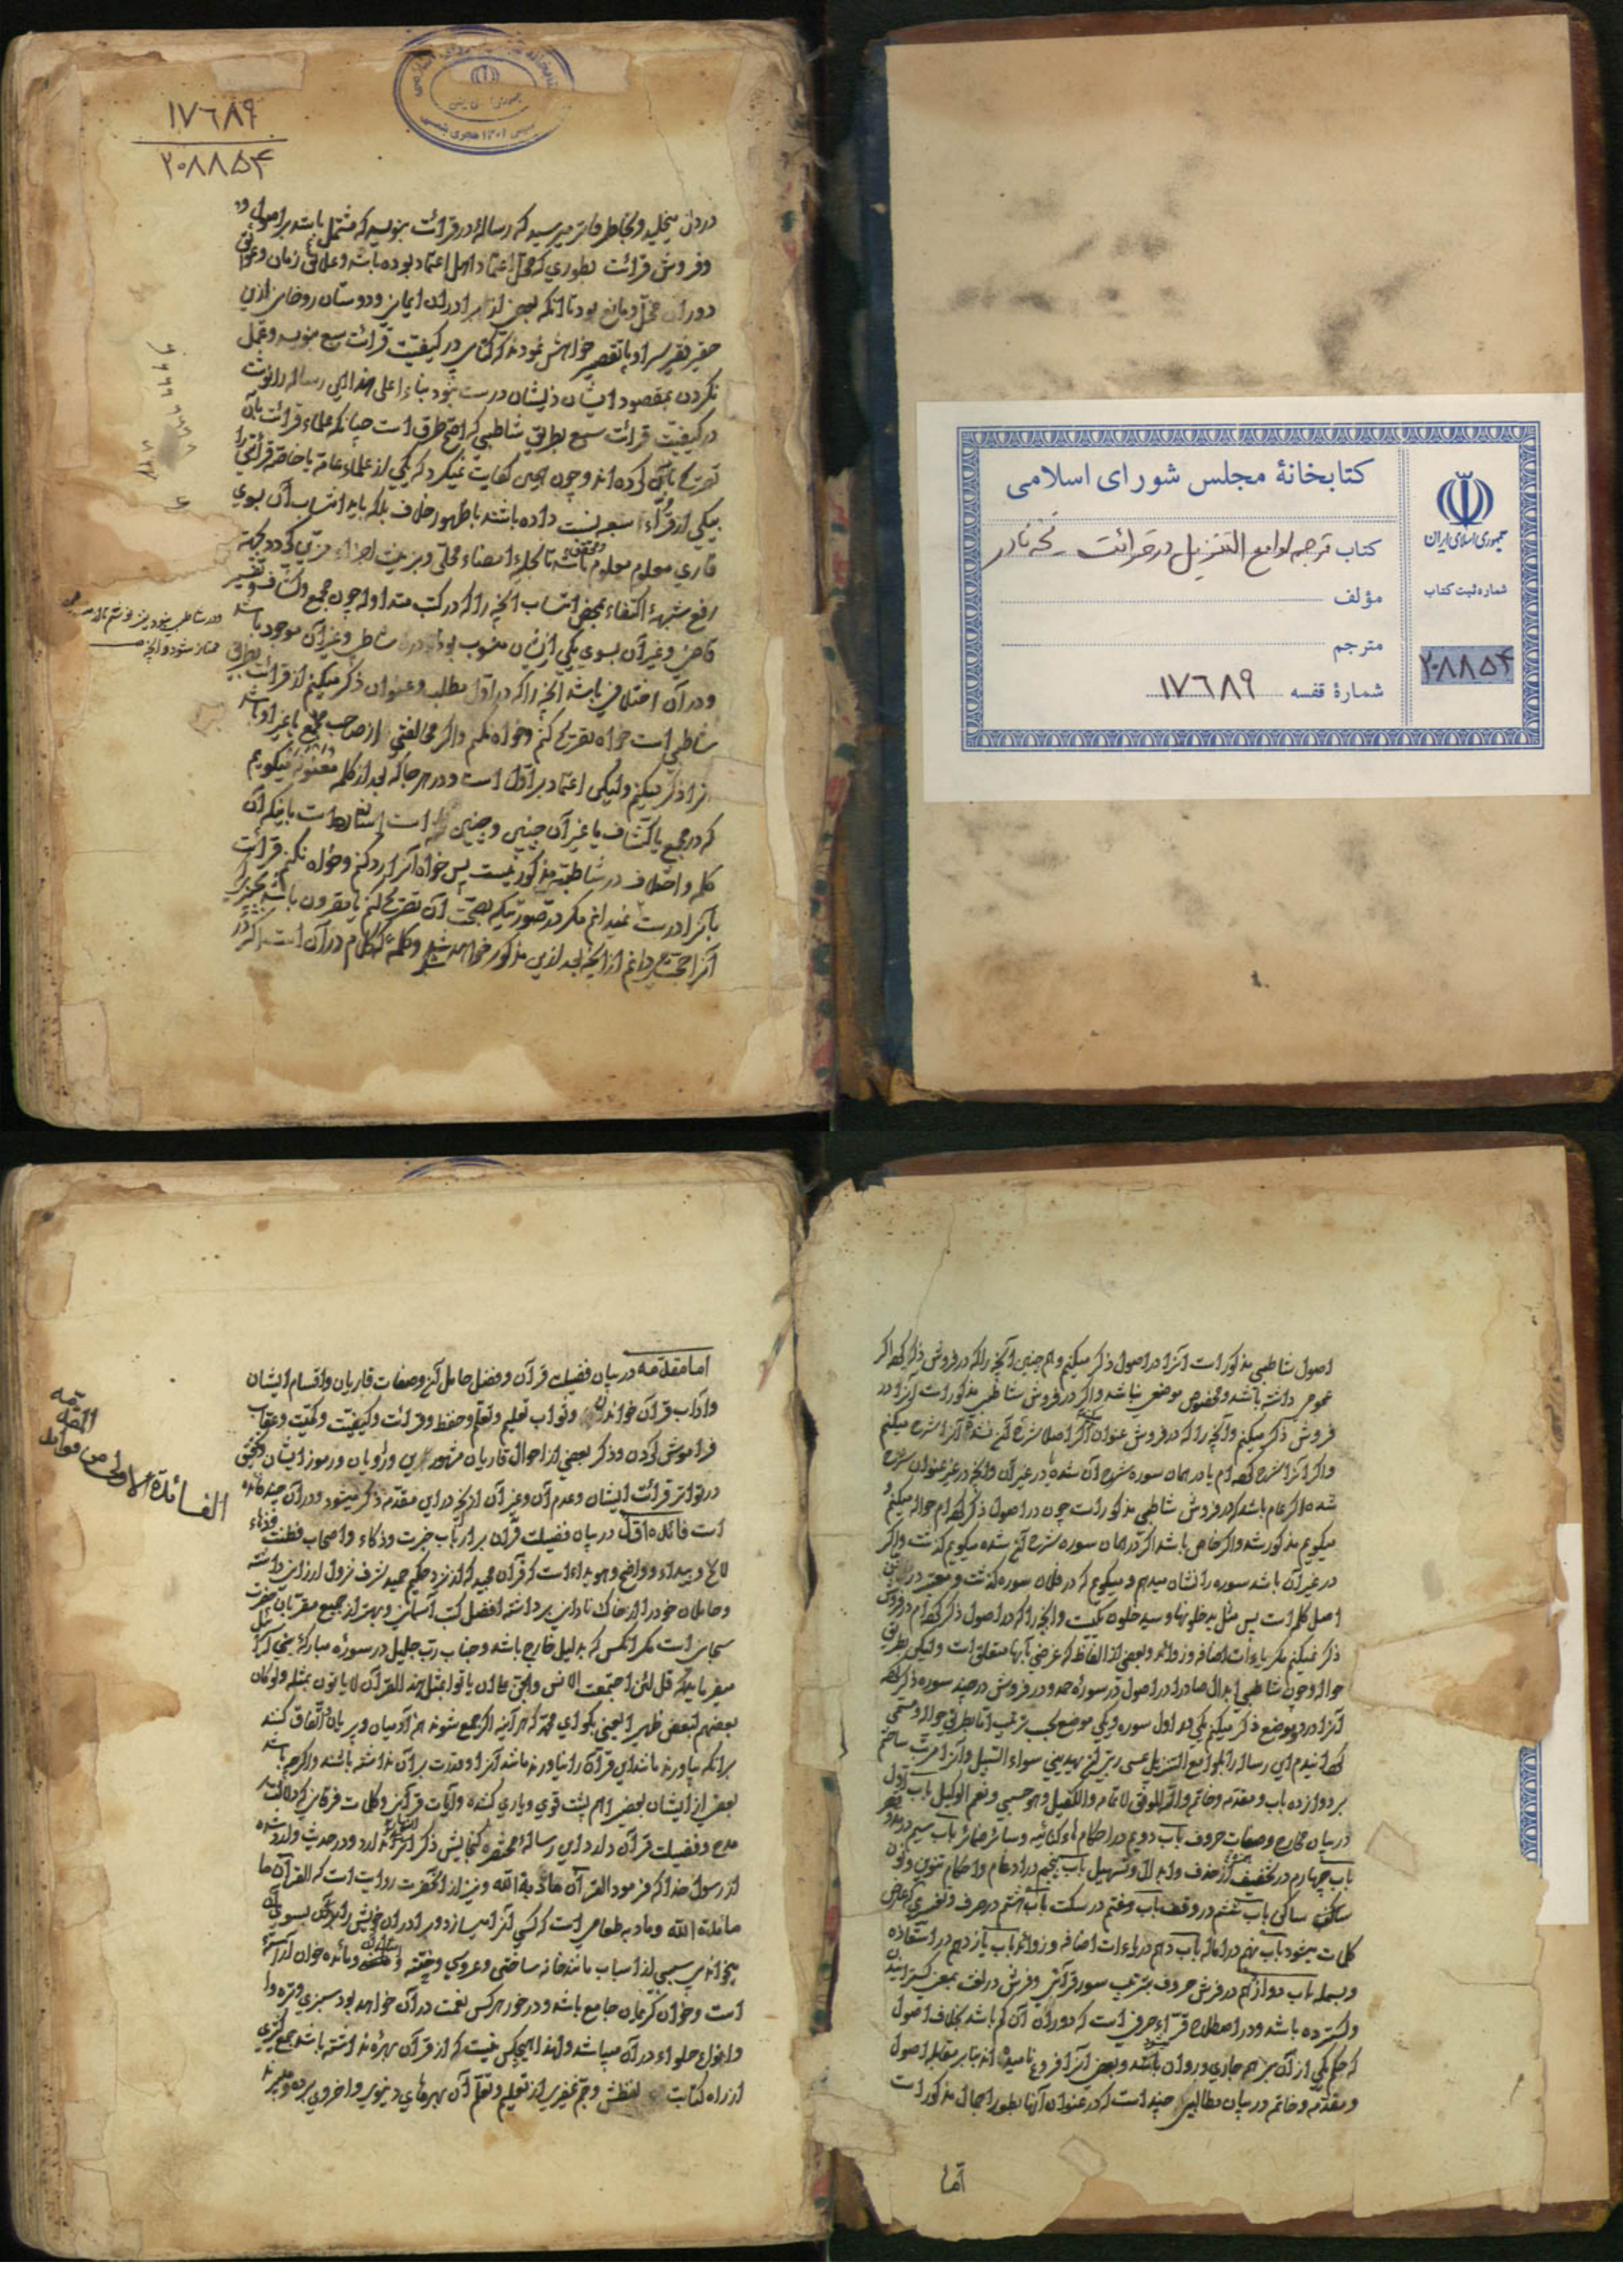 کتابخانهٔ مجلس شورای اسلامی
کتاب ترجمه لوامع التنزیل در قرائت
مؤلف
مترجم
شمارهٔ قفسه ۱۷٦۸۹
جمهوری اسلامی ایران
شماره ثبت کتاب
۲۰۸۸۵۴
۱۷٦۸۹
۲۰۸۸۵۴
در دل میخلید و بخاطر فاتر میرسید که رساله در قرائت بنویسد که مشتمل باشد بر اصول و
و فروش قرائت بطوری که محل اعتماد اهل اعتماد بوده باشد و علائق زمان و عوائق
دوران مخل و مانع بود تا آنکه بعضی از برادران ایمانی و دوستان روحانی ازین
حقیر فقیر سراپا تقصیر خواهش نمودند که کتابی در کیفیت قرائت سبع بنویسد و عمل
نکردن بمقصود ایشان درست نبود بناء علی هذا این رساله را نوشت
در کیفیت قرائت سبع بطریق شاطبی که اصح طرق است چنانکه علماء قرائت بآن
تصریح کرده اند و چون همین کفایت نمیکرد که یکی از علماء عامه یا خاصه قرائتی را
بیکی از قراء سبعه نسبت داده باشند با ظهور خلاف بلکه باید انتساب آن بسوی
قاری معلوم
رفع شبههٔ اکتفاء بمحض انتساب آنچه را که در کتب متداوله چون مجمع و کشاف و تفسیر
قاضی و غیر آن بسوی یکی از ایشان منسوب بوده در شاطبی و غیر آن موجود باشد
و در آن اختلافی باشد آنچه را که در اول مطلب و عنوان ذکر میکنم از قرائت بطریق
شاطبی است خواه تصریح کنم و خواه نکنم و اگر مخالفتی از صاحب مجمع یا غیر او باشد
آنرا ذکر میکنم ولیکن اعتماد بر اول است و در هر جا که بعد از کلمه معنونه میگویم
که در مجمع یا کشاف یا غیر آن چنین و چنین است اشاره است باینکه آن
کلمه و اختلاف در شاطبیه مذکور نیست پس خواه آنرا رد کنم و خواه نکنم قرائت
بآنرا درست نمیدانم مگر در صورتیکه بصحت آن تصریح کنم یا مقرون باشد بچیزیکه
آنرا حجت میدانم از آنچه بعد ازین مذکور خواهد شد و کلمهٔ که کلام در آن است اگر در
اصول شاطبی مذکور است آنرا در اصول ذکر میکنم و همچنین آنچه را که در فروش ذکر کرده اگر
عموم داشته باشد و مخصوص موضعی نباشد و اگر در فروش شاطبی مذکور است آنرا در
فروش ذکر میکنم و آنچه را که در فروش عنوان کنم اگر اصلا شرح آن نشده آنرا شرح میکنم
و اگر آنرا شرح کرده ام یا در همان سوره شرح آن شده یا در غیر آن و آنچه در غیر عنوان شرح
شده اگر عام باشد که در فروش شاطبی مذکور است چون در اصول ذکر کرده ام حواله میکنم و
میگویم مذکور شد و اگر خاص باشد اگر در همان سوره شرح آن شده میگویم گذشت و اگر
در غیر آن باشد سوره را نشان میدهم و میگویم که در فلان سوره گذشت و معتبر در
اصل کلمه است پس مثل یدخلونها و سیدخلون یکیست و آنچه را که در اصول ذکر کرده ام در فروش
ذکر نمیکنم مگر یاءات اضافه و زوائد و بعضی از الفاظ که غرضی بآنها متعلق است ولیکن بطریق
حواله و چون شاطبی ابدال صاد را در اصول در سورهٔ حمد و در فروش در چند سوره ذکر کرده
آنرا در دو موضع ذکر میکنم یکی در اول سوره و یکی موضع بحسب ترتیب اما بطریق حواله و مسمی
گردانیدم این رساله را بلوامع التنزیل عسی ربی ان یهدینی سواء السبیل و آنرا مرتب ساختم
بر دوازده باب و مقدمه و خاتمه والله الموفق للاتمام والکفیل و هو حسبی و نعم الوکیل باب اول
در بیان مخارج و صفات حروف باب دویم در احکام هاء کنایه و سائر ضمائر باب سیم در مد و قصر
باب چهارم در تخفیف همزه از حذف و ابدال و تسهیل باب پنجم در ادغام و احکام تنوین و نون
ساکن باب ششم در وقف باب هفتم در سکت باب هشتم در حرف و تغییری که عارض
کلمات میشود باب نهم در اماله باب دهم در یاءات اضافه و زوائد باب یازدهم در استعاذه
و بسمله باب دوازدهم در فرش حروف بترتیب سور قرآنی و فرش در لغت بمعنی گسترانیدن
و گسترده باشد و در اصطلاح قراء حرفی است که دوران آن کم باشد بخلاف اصول
که حکم یکی از آن بر همه جاری و روان باشد و بعضی آنرا فروع نامیده اند بنا بر مقابله اصول
و مقدمه و خاتمه در بیان مطالبی چند است که در عنوان آنها بطور اجمال مذکور است
اما
اما مقدمه در بیان فضیلت قرآن و فضل حامل آن و صفات قاریان و اقسام ایشان
و آداب قرآن خواندن و ثواب تعلیم و تعلم و حفظ و قرائت و کیفیت و کمیت و عقاب
فراموش کردن و ذکر بعضی از احوال قاریان مشهورین و راویان و رموز ایشان و تحقیق
در تواتر قرائت ایشان و عدم آن و غیر آن از آنچه در این مقدمه ذکر میشود و در آن چند فائده
است فائده اول در بیان فضیلت قرآن بر ارباب خبرت و ذکاء و اصحاب فطنت و دهاء
لایح و پیدا و واضح و هویداء است که قرآن مجید که از نزد حکیم حمید شرف نزول ارزانی داشته
و حاملان خود را از خاک نادانی برداشته افضل کتب آسمانی و بهتر از جمیع مقربان حضرت
سبحانی است مگر آنکس که بدلیل خارج باشد و جناب رب جلیل در سوره مبارکهٔ بنی اسرائیل
میفرماید که قل لئن اجتمعت الانس والجن علی ان یأتوا بمثل هذا القرآن لا یأتون بمثله ولو کان
بعضهم لبعض ظهیرا یعنی بگو ای محمد که هر آینه اگر جمع شوند همه آدمیان و پریان و اتفاق کنند
بر آنکه بیاورند مانند این قرآن را نیاورند مانند آنرا و قدرت بر آن نداشته باشند و اگر چه باشند
بعضی از ایشان بعضی را هم پشت قوی و یاری کننده و آیات قرآنی و کلمات فرقانی که دلالت بر
مدح و فضیلت قرآن دارد این رسالهٔ مختصره گنجایش ذکر آنرا ندارد و در حدیث وارد شده
از رسول خدا که فرمود القرآن مأدبة الله و نیز از آنحضرت روایت است که القرآن
مائدة الله و مأدبه طعامی است که کسی آنرا میسازد و برادران خویش را بسوی آن
میخواند بسببی از اسباب مانند خانه ساختن و عروسی و ختنه و مائده خوان آراسته
است و خوان کریمان جامع باشد و در خور هر کس نعمت در آن خواهد بود سبزی و تره و
و انواع حلواء در آن میباشد و لهذا هیچکس نیست که از قرآن بهره نداشته باشد جمع کثیری
از راه کتابت لفظش و جم غفیری از تعلیم و تعلم آن بهره های دنیوی و اخروی برده و میبرند
الفائدة الاولی من فوائد
المقدمه